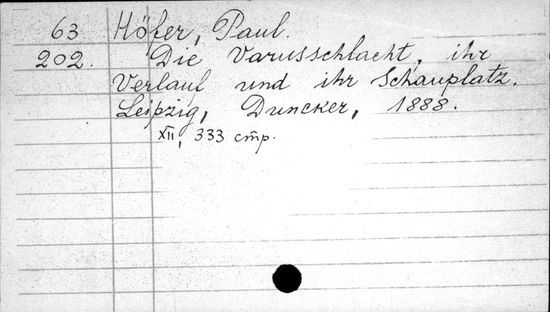 63 Höfer, Paul.
202. Die Varusschlacht, ihr
Verlauf und ihr Schauplatz.
Leipzig, Duncker, 1888.
XII, 333 cmp.